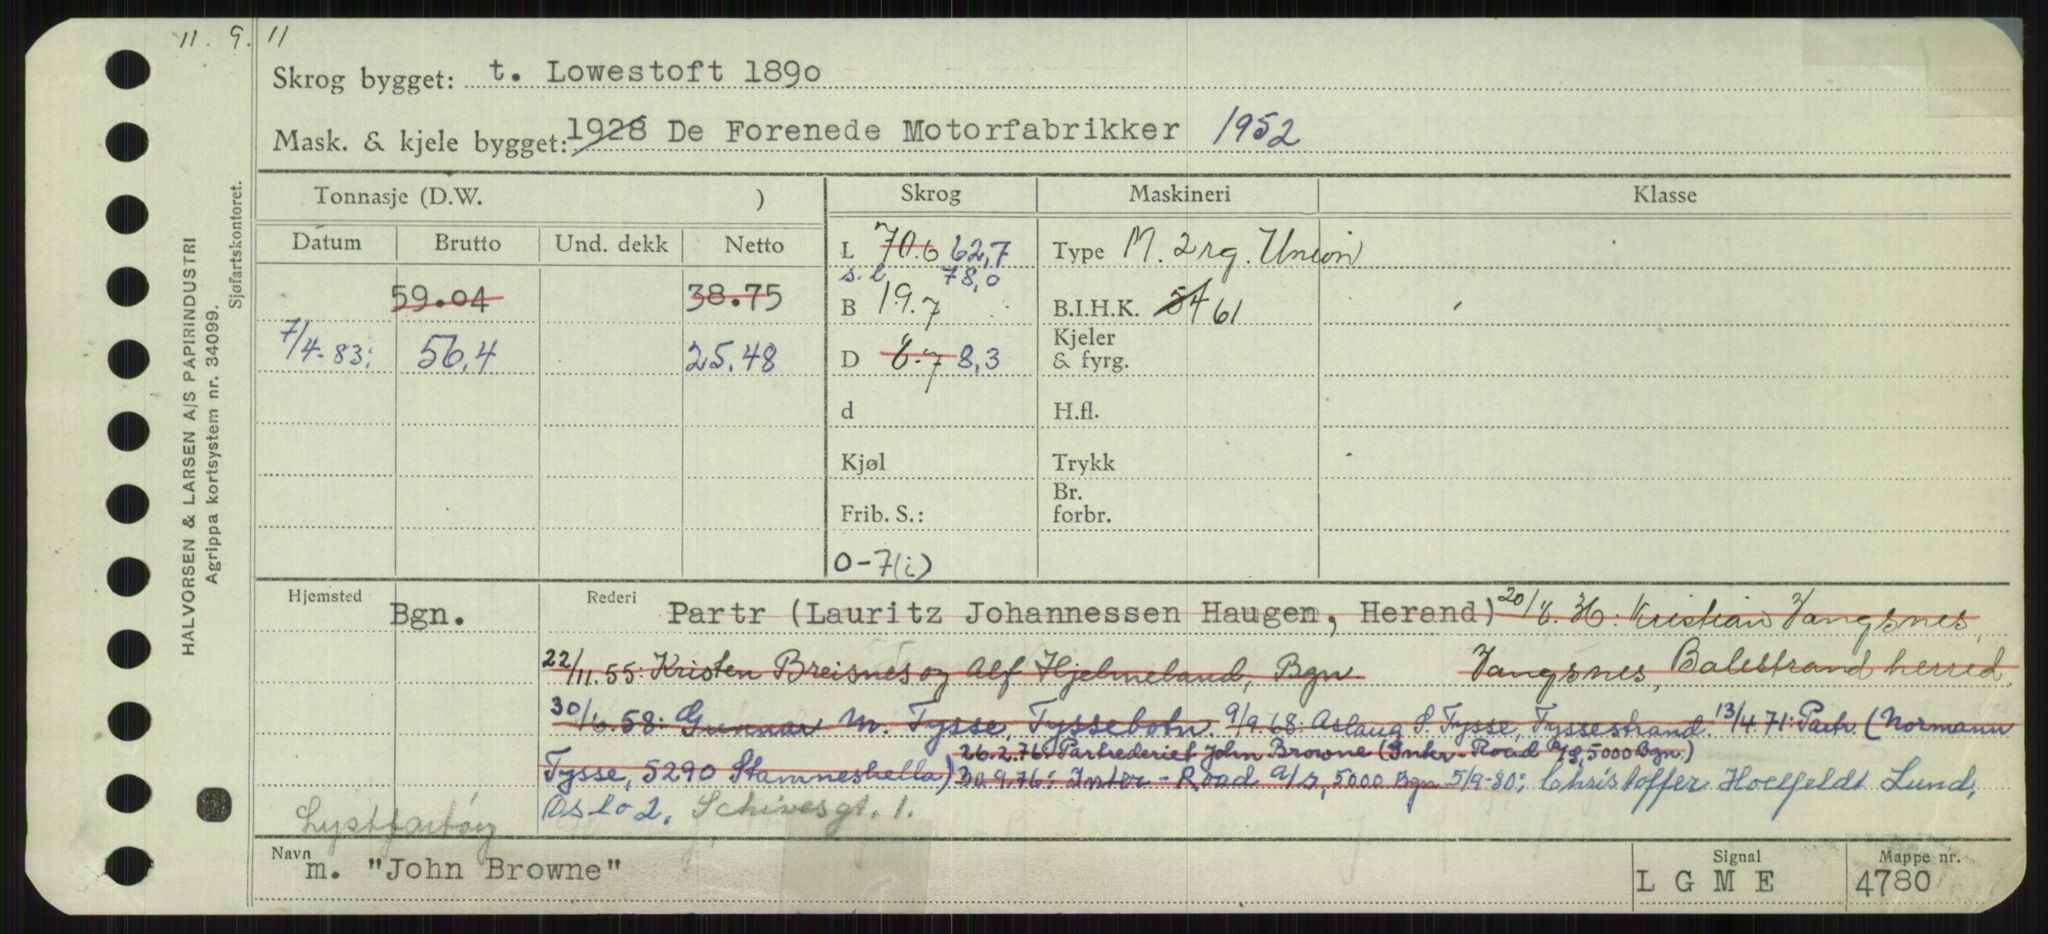 11. 9. 11
Skrog bygget: t. Lowestoft 1890
Mask. & kjele bygget: 1928 De Forenede Motorfabrikker 1952
Tonnasje (D.W. )
Skrog
Maskineri
Klasse
Datum
Brutto
Und. dekk
Netto
L 70.6 62,7
Type M. 2 rg. Union
s.l 78,0
59.04
38.75
B 19.7
B.I.H.K. 54 61
7/4-83: 56,4
25.48
D 8.7 8,3
Kjeler
& fyrg.
d
H.fl.
Kjøl
Trykk
Br.
forbr.
Frib. S.:
0-7(i)
Hjemsted Bgn.
Rederi Partr (Lauritz Johannessen Haugen, Herand) 20/8. Kristian Vangsnes,
22/11.55: Kristen Breisnes og Alf Hjelmeland, Bgn Vangsnes, Balestrand herred.
30/6.58: Gunnar M. Tysse, Tyssebotn. 9/9.68: Aslaug S. Tysse, Tyssestrand. 13/4.71: Partr. (Normann
26.2.76: Partrederiet John Browne (Inter-Road A/S, 5000 Bgn.)
Tysse, 5290 Stamneshella) 30.9.76: Inter-Road A/S, 5000 Bgn 5/9-80: Christoffer Hoelfeldt Lund,
Lystfartøy
Oslo 2. Schivesgt. 1.
Navn m. "John Browne"
Signal
L G M E
Mappe nr.
4780
HALVORSEN & LARSEN A/S PAPIRINDUSTRI
Agrippa kortsystem nr. 34099.
Sjøfartskontoret.